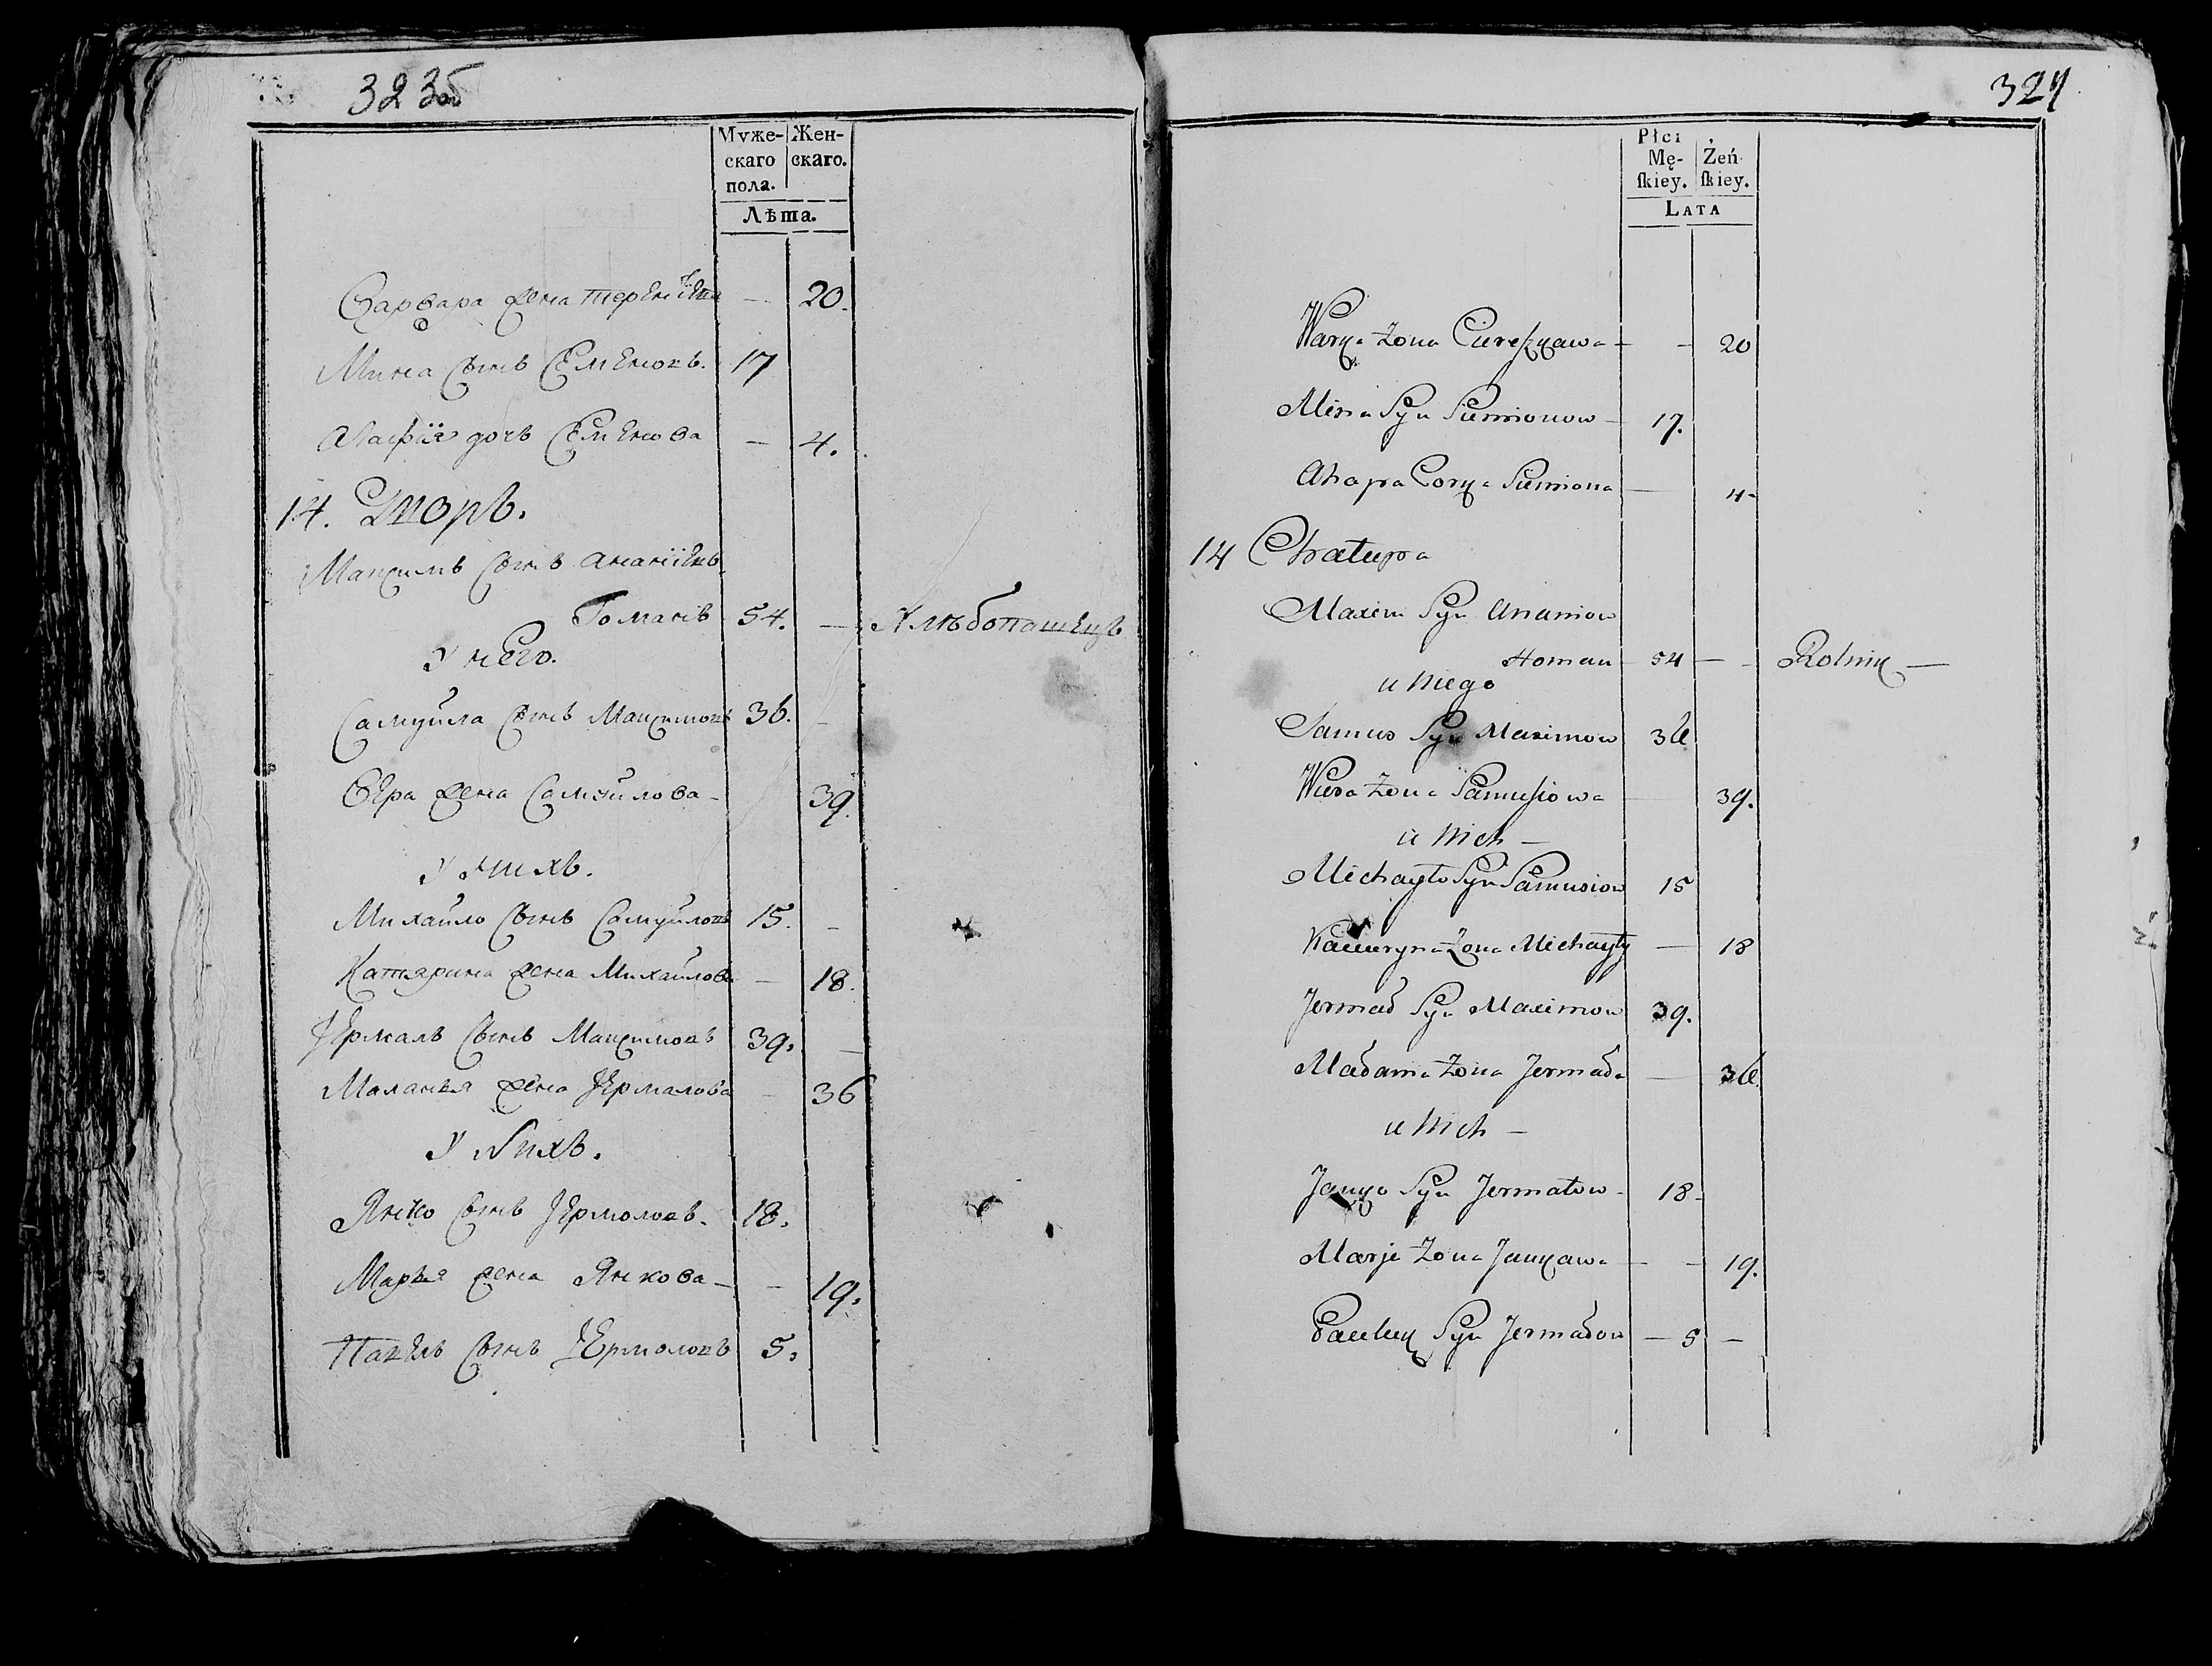 323об
Муже- Жен-
скаго скаго.
пола.
Лѣта.
Варвара жена Терентіева — 20.
Мина сынъ Семеновъ. 17
Агафія дочь Семенова — 4.
14. Дворъ.
Максимъ сынъ Ананіевъ
Гоманъ 54. — Хлѣбопашецъ
У него.
Самуйла сынъ Максимовъ 36. —
Вера жена Самуйлова — 39.
У нихъ.
Михайло сынъ Самуйловъ 15. —
Катярина жена Михайлова — 18.
Ермалъ сынъ Максимовъ 39. —
Маланья жена Ермалова — 36
У нихъ.
Янко сынъ Ермоловъ. 18.
Марья жена Янкова — — 19.
Павелъ сынъ Ермоловъ 5.
324
Płci
Mę- Żeń
ſkiey. ſkiey.
LATA
Żona — — 20
Mina Syn Siemionow — 17.
Ahapa Corka Siemiona — 4-
14 Chałupa
Maxim Syn Ananiow
Homan 54 — — Rolnik —
u Niego
Samus Syn Maximow 36
Wiera Żona Samusiowa — 39.
u Nich —
Michayło Syn Samusiow 15
Kateryna Żona Michayły — 18
Jermał Syn Maximow 39.
Małania Żona Jermała — 36
u Nich —
Janko Syn Jermałow — 18-
Marja Żona Jankawa — — 19.
Pauluk Syn Jermałow — 5 —